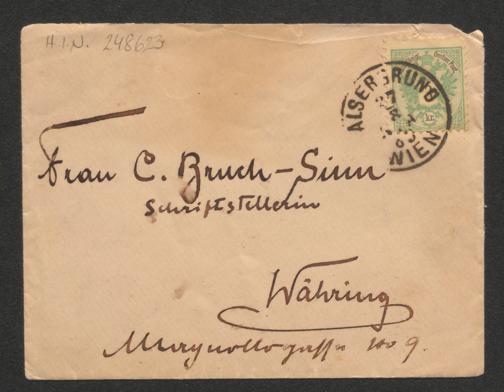 H.I.N. 248623
ALSERGRUND
WIEN
Frau C. Bruch-Sinn
Schriftstellerin
Währing
No 9.